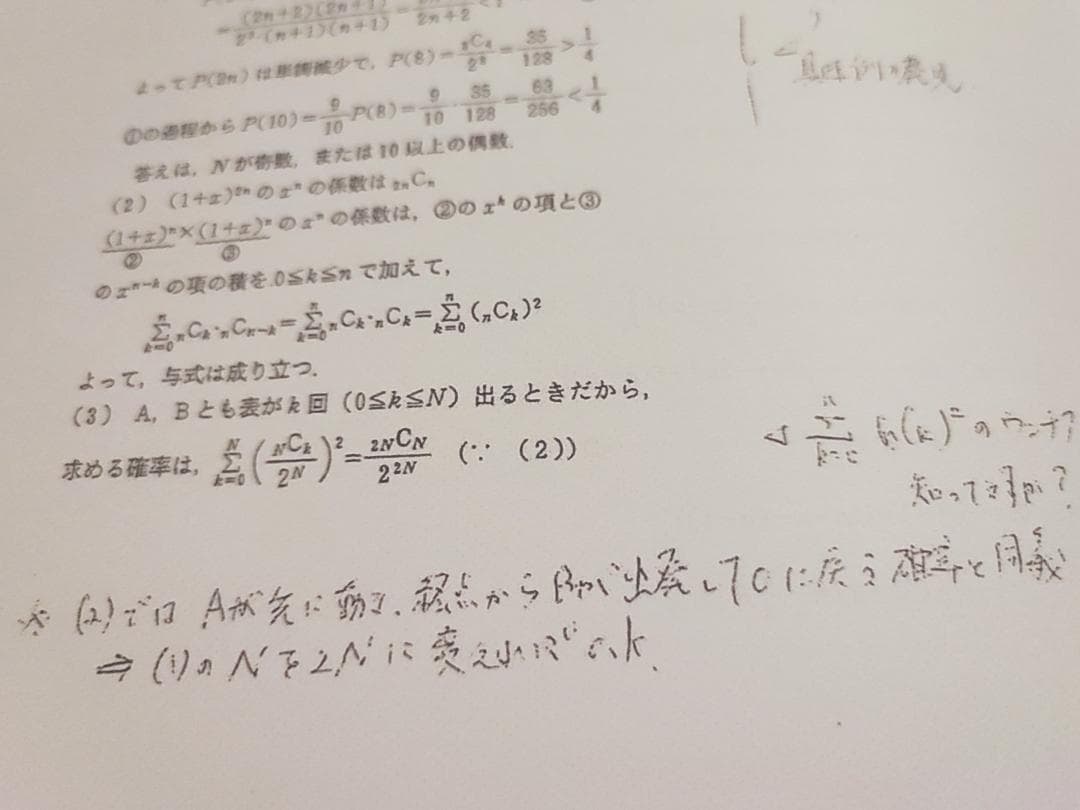 =(2n+2)(2n+1)/2²·(n+1)(n+1)= /2n+2<1
よってP(2n)は単調減少で，P(8)=₈C₄/2⁸=35/128>1/4
①の過程からP(10)=9/10P(8)=9/10·35/128=63/256<1/4
答えは，Nが奇数，または10以上の偶数．
(2) (1+x)²ⁿのxⁿの係数は₂ₙCₙ
(1+x)ⁿ×(1+x)ⁿのxⁿの係数は，②のxᵏの項と③
② ③
のxⁿ⁻ᵏの項の積を0≦k≦nで加えて，
∑ₖ₌₀ⁿ ₙCₖ·ₙCₙ₋ₖ=∑ₖ₌₀ⁿ ₙCₖ·ₙCₖ=∑ₖ₌₀ⁿ(ₙCₖ)²
よって，与式は成り立つ．
(3) A，Bとも表がk回（0≦k≦N）出るときだから，
求める確率は，∑ₖ₌₀ᴺ(ɴCₖ/2ᴺ)²=₂ɴCɴ/2²ᴺ (∵ (2))
知ってますか?
(2)では Aが先に動き、終点からBが出発して0に戻る確率と同義
⇒ (1)の Nを2Nに変えればOK.